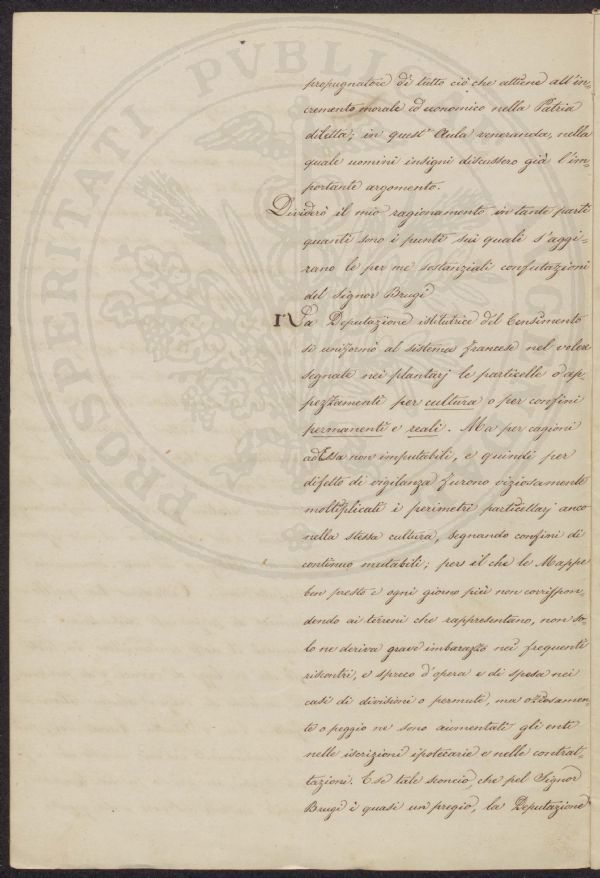 propugnatore di tutto ciò che attiene all'in-
cremento morale ed economico nella Patria
diletta; in quest'Aula veneranda, nella
quale uomini insigni discussero già l'im-
portante argomento.
Dividerò il mio ragionamento in tante parti
quanti sono i punti sui quali s'aggi-
rano le per me sostanziali confutazioni
del Signor Brugi
1° La Deputazione istitutrice del Censimento
si uniformò al sistema francese nel voler
segnate nei plantarj le particelle o ap-
pezzamenti per cultura o per confini
permanenti e reali. Ma per cagioni
ad Essa non imputabili, e quindi per
difetto di vigilanza furono viziosamente
moltiplicati i perimetri particellarj anco
nella stessa cultura, segnando confini di
continuo mutabili; per il che le Mappe
ben presto e ogni giorno più non corrispon-
dendo ai terreni che rappresentano, non so-
lo ne deriva grave imbarazzo nei frequenti
riscontri, e spreco d'opera e di spesa nei
casi di divisioni o permute, ma oziosamen-
te o peggio ne sono aumentati gli enti
nelle iscrizioni ipotecarie e nelle contrat-
tazioni. E se tale sconcio, che pel Signor
Brugi è quasi un pregio, la Deputazione
PROSPERITATI PVBLIC